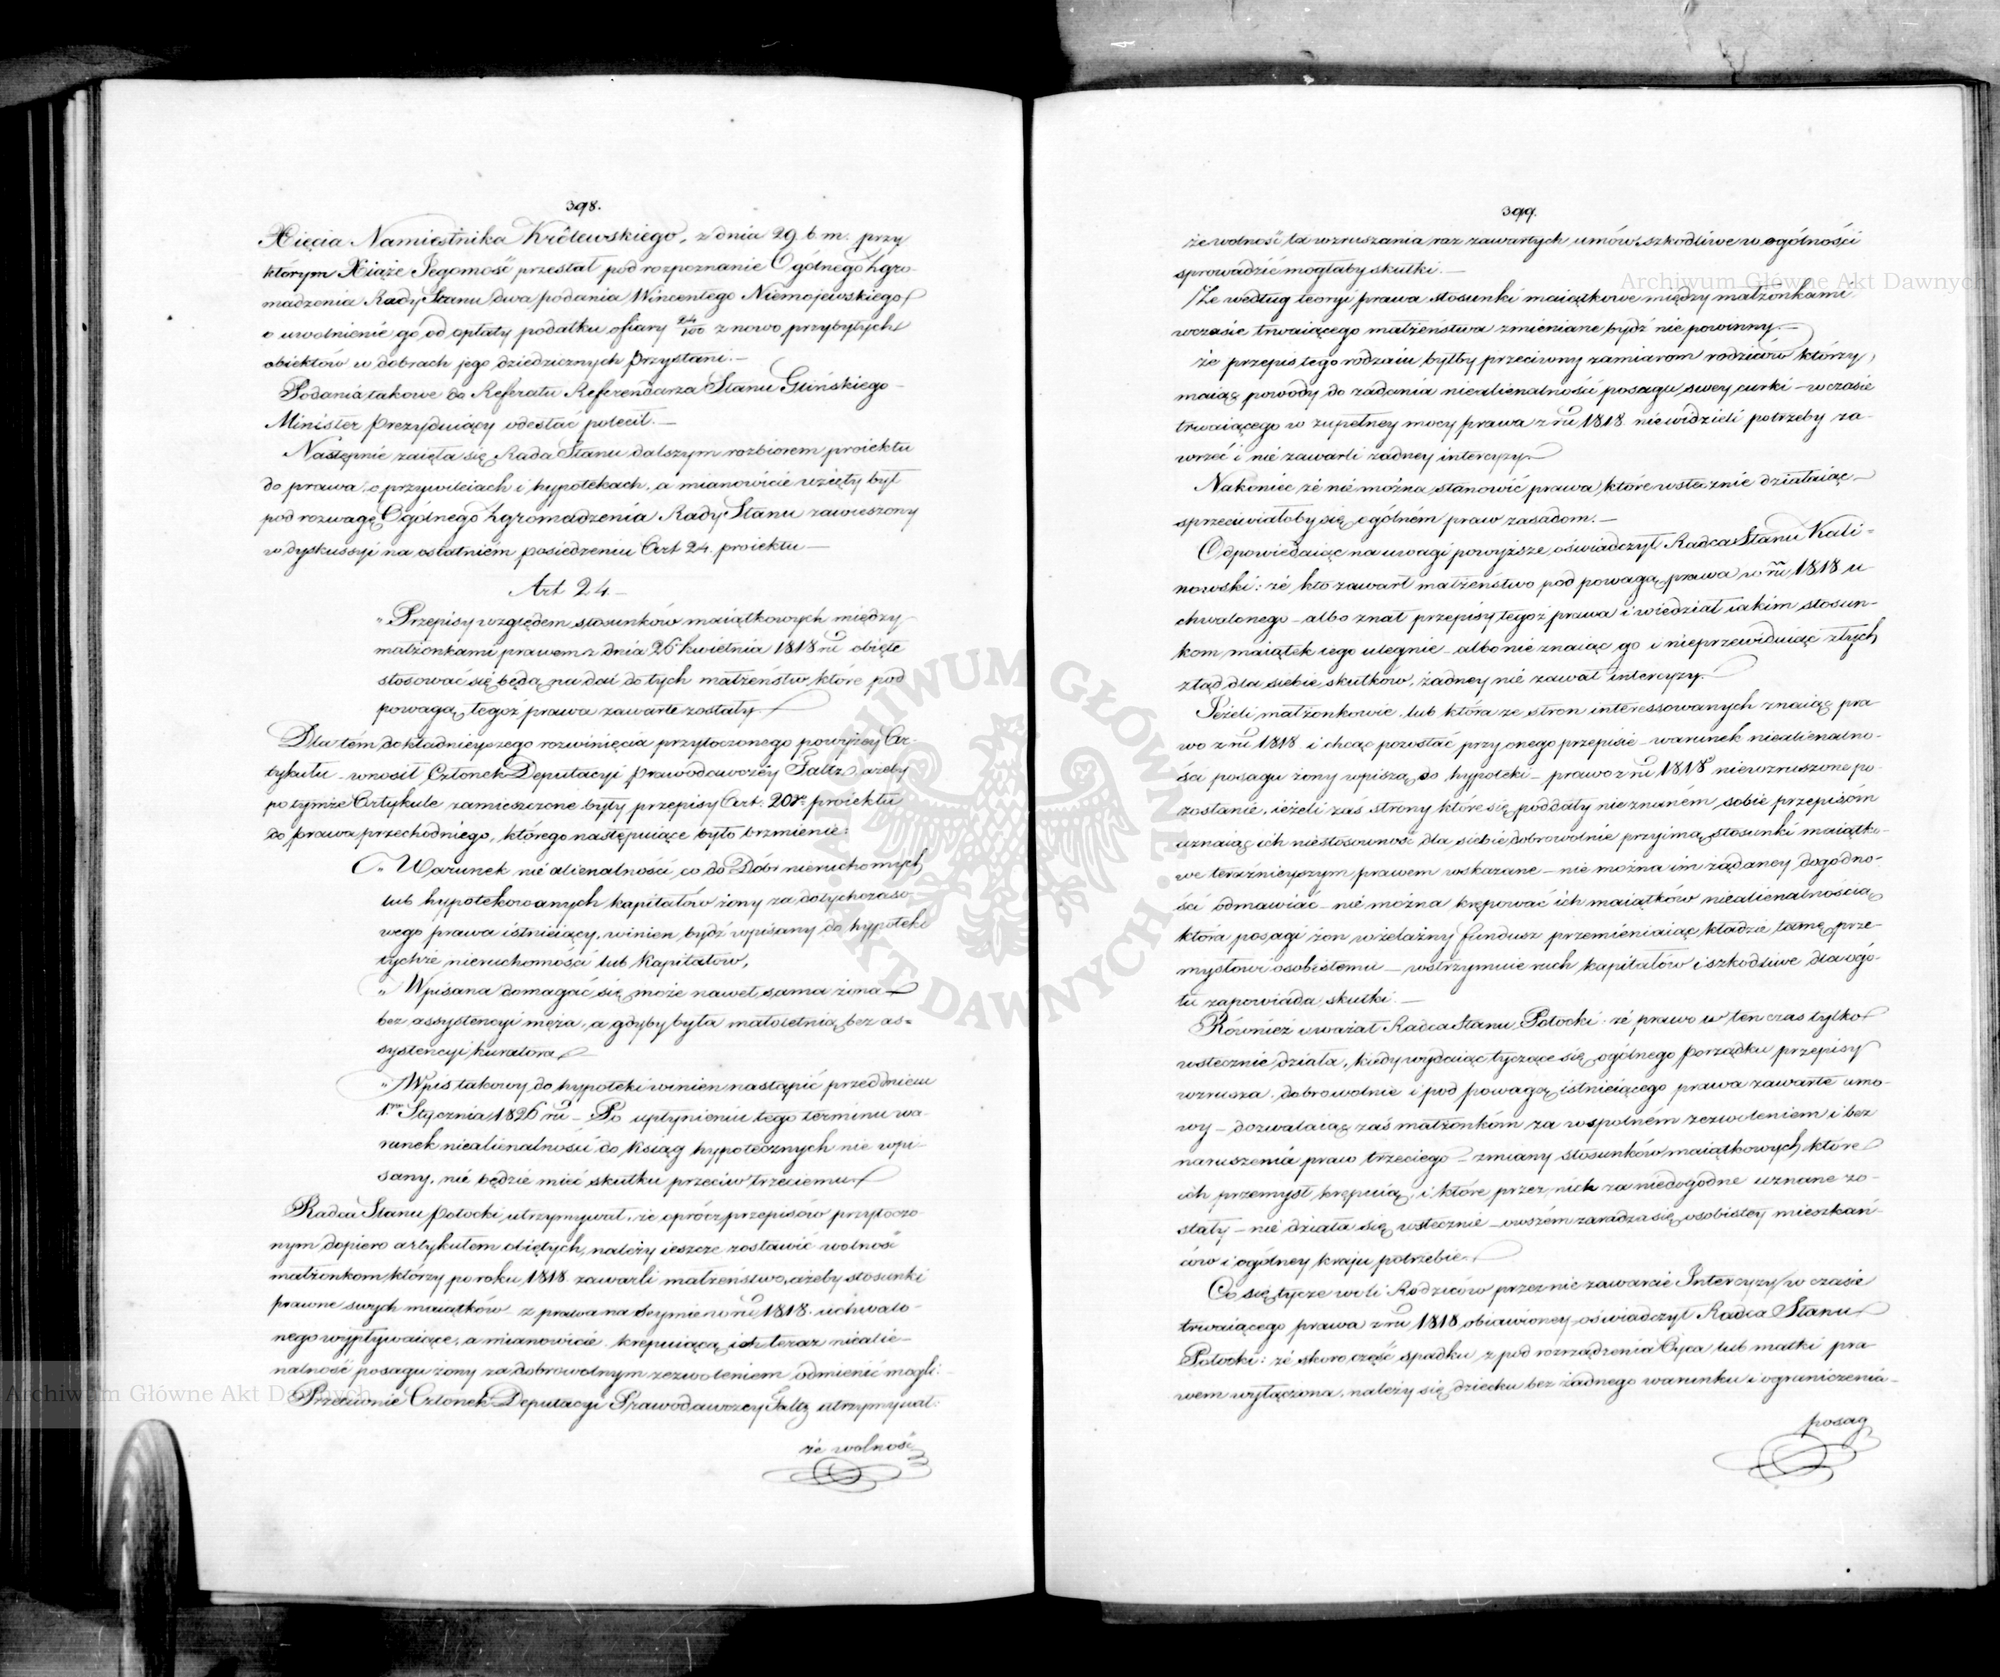 398.
Xięcia Namiestnika Królewskiego, z dnia 29 b. m. przy
którym Xiąże Jegomość przesłał pod rozpoznanie Ogólnego Zgro-
madzenia Rady Stanu dwa podania Wincentego Niemojewskiego
o uwolnienie go od opłaty podatku ofiary 24/100 z nowo przybyłych
obiektów w dobrach jego dziedzicznych Przystani.—
Podania takowe do Referatu Referendarza Stanu Glińskiego
Minister Prezyduiący odesłać polecił.—
Następnie zaięła się Rada Stanu dalszym rozbiorem proiektu
do prawa o przywileiach i hypotekach, a mianowicie wzięty był
pod rozwagę Ogólnego Zgromadzenia Rady Stanu zawieszony
w dyskussyi na ostatniém posiedzeniu Art 24. proiektu—
Art 24.—
„Przepisy względem stosunków maiątkowych między
małżonkami prawem z dnia 26 kwietnia 1818 ru obięte
stosować się będą na dal do tych małżeństw, które pod
powagą tegoż prawa zawarte zostały.
Dla tém dokładnieyszego rozwinięcia przytoczonego powyżey Ar-
tykułu - wnosił Członek Deputacyi Prawodawczéy Faltz, ażeby
po tymże Artykule zamieszczone były przepisy Art. 20go proiektu
do prawa przechodniego, którego następuiące było brzmienie:
„Warunek nie alienalności co do Dóbr nieruchomych
lub hypotekowanych kapitałów żony za dotychczaso-
wego prawa istnieiący, winien bydź wpisany do hypoteki
tychże nieruchomości lub Kapitałów,
„Wpisana domagać się może nawet sama żona
bez assystencyi męża, a gdyby była małoletnią bez as-
systencyi kuratora
„Wpis takowy do hypoteki winien nastąpić przed dniem
1m Stycznia 1826 ru — Po upłynieniu tego terminu wa-
runek niealienalności do Ksiąg hypotecznych nie wpi-
sany, nié będzie mieć skutku przeciw trzeciemu
Radca Stanu Potocki utrzymywał, że oprócz przepisów przytoczo-
nym dopiero artykułem obiętych, należy ieszcze zostawić wolność
małżonkom którzy po roku 1818 zawarli małżeństwo, ażeby stosunki
prawne swych maiątków z prawa na Seymie w ru 1818. uchwalo-
nego wypływaiące, a mianowicie krępuiącą ich teraz niealie-
nalność posagu żony za dobrowolnym zezwoleniem odmienić mogli:
Przeciwnie Członek Deputacyi Prawodawczey Faltz utrzymywał:
że wolność
399.
że wolność ta wzruszania raz zawartych umów, szkodliwe w ogólności
sprowadzić mogłaby skutki.—
Że według teoryi prawa stosunki maiątkowe między małżonkami
w czasie trwaiącego małżeństwa zmieniane bydź nie powinny.—
że przepis tego rodzaiu byłby przeciwny zamiarom rodziców, którzy,
maiąc powody do żądania niealienalności posagu swey curki — w czasie
trwaiącego w zupełney mocy prawa z ru 1818. nie widzieli potrzeby za-
wrzeć i nie zawarli żadney intercyzy
Nakoniec że nie można stanowić prawa, które wstecznie działaiąc
sprzeciwiałoby się ogólném praw zasadom.—
Odpowiedaiąc na uwagi powyższe, oświadczył Radca Stanu Kali-
nowski: że kto zawarł małżeństwo pod powagą prawa w ru 1818 u-
chwalonego — albo znał przepisy tegoż prawa i wiedział iakim stosun-
kom maiątek iego ulegnie — albo nie znaiąc go i nieprzewiduiąc złych
ztąd dla siebie skutków, żadney nie zawał intercyzy.
Jeżeli małżonkowie, lub która ze stron interessowanych znaiąc pra-
wo z ru 1818 i chcąc pozostać przy onego przepisie — warunek niealienalno-
ści posagu żony wpiszą do hypoteki — prawo z ru 1818 niewzruszone po-
zostanie, ieżeli zaś strony które się poddały nieznaném sobie przepisóm
uznaiąc ich niestosowność dla siebie, dobrowolnie przyimą stosunki maiątko-
we teraźnieyszym prawem wskazane — nie można im żądaney dogodno-
ści odmawiać — nie można krępować ich maiątków niealienalnością
która posagi żon w żelazny fundusz przemieniaiąc kładzie tamę prze-
mysłowi osobistemu — wstrzymuie ruch kapitałów i szkodliwe dla ogó-
łu zapowiada skutki.—
Również uważał Radca Stanu Potocki: że prawo w ten czas tylko
wstecznie działa, kiedy wydaiąc tyczące się ogólnego porządku przepisy
wzrusza dobrowolnie i pod powagą istnieiącego prawa zawarte umo-
wy — dozwalaiąc zaś małżonkóm za wspólném zezwoleniem i bez
naruszenia praw trzeciego — zmiany stosunków maiątkowych, które
ich przemysł krępuią, i które przez nich za niedogodne uznane zo-
stały — nie działa się wstecznie — owszém zaradza się osobistey mieszkań-
ców i ogólney kraju potrzebie.
Co się tycze woli Rodziców przez nie zawarcie Intercyzy w czasie
trwaiącego prawa z ru 1818 obiawioney, oświadczył Radca Stanu
Potocki: że skoro część spadku z pod rozrządzenia Oyca lub matki pra-
wem wyłączona, należy się dziecku bez żadnego warunku i ograniczenia—
posag
ARCHIWUM GŁÓWNE AKT DAWNYCH
Archiwum Główne Akt Dawnych
Archiwum Główne Akt Dawnych